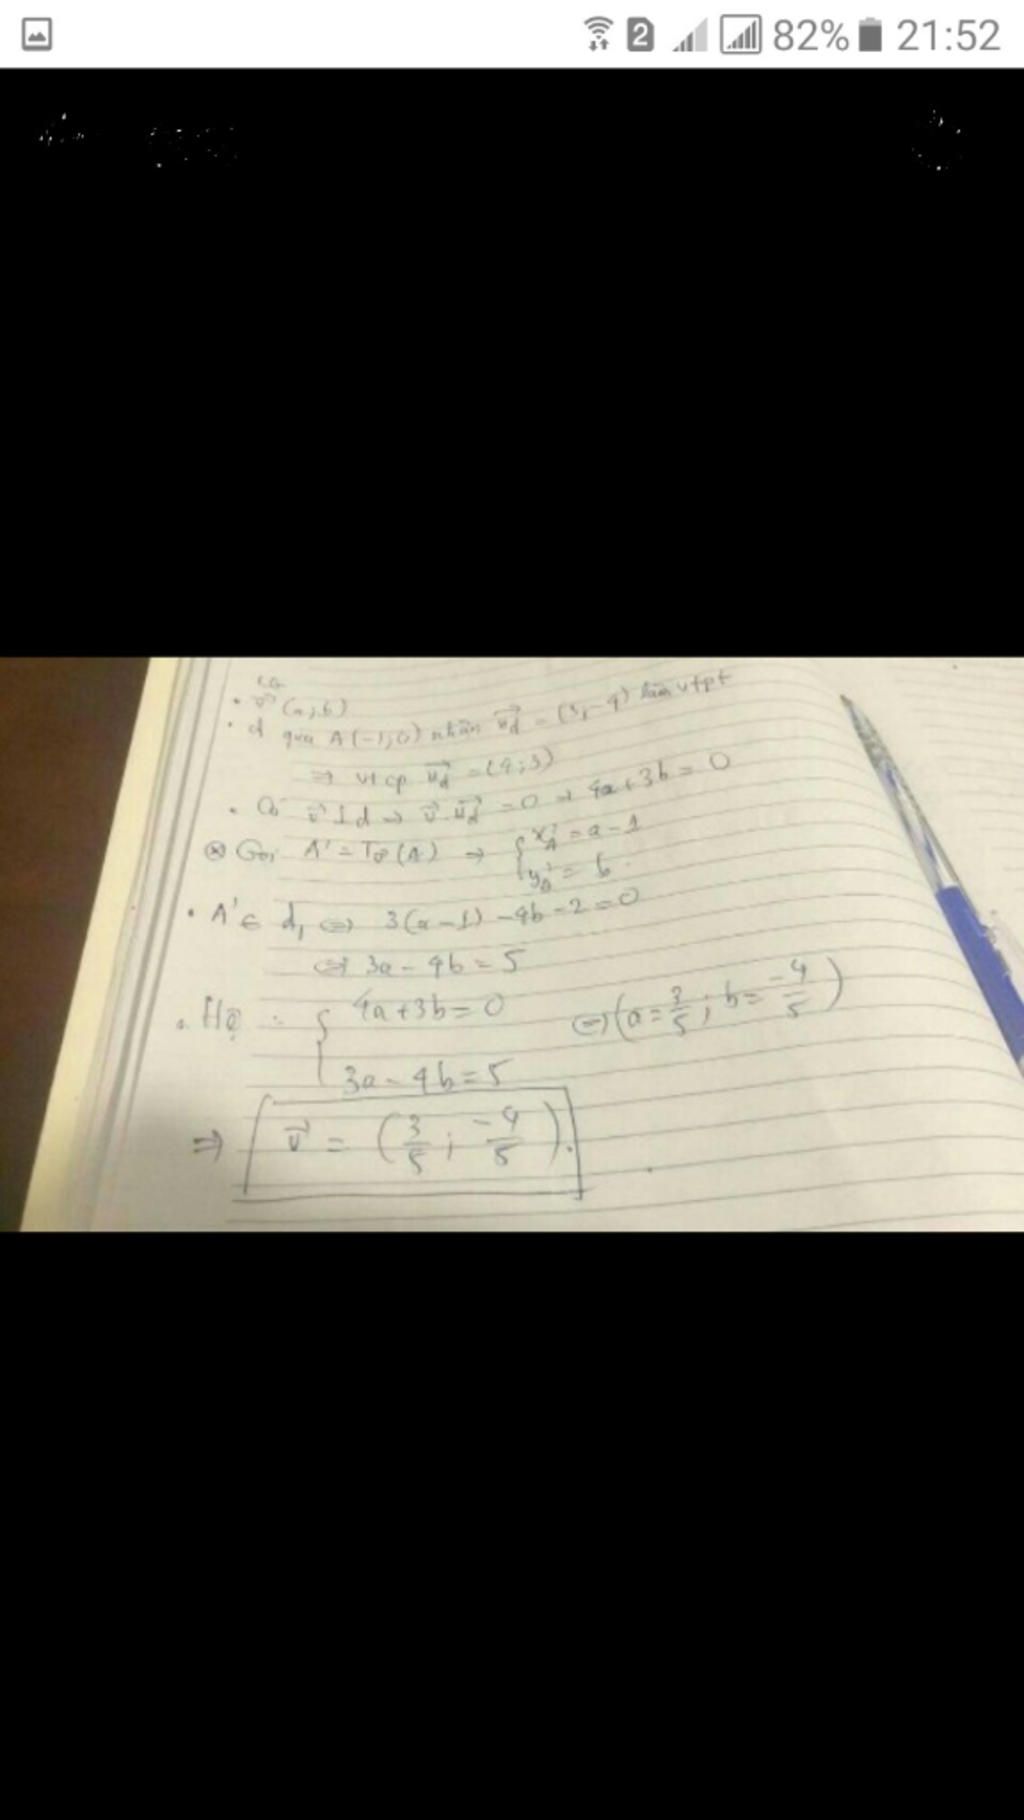 2 82% 21:52
LG
• v⃗ (a;b)
• d qua A(-1;0) nhận n⃗d = (3;-4) làm vtpt
⇒ vtcp u⃗d = (4;3)
• Có v⃗ ⊥ d ⇒ v⃗.u⃗d = 0 ⇒ 4a+3b = 0
⊛ Gọi A' = Tv⃗(A) ⇒ { x'A = a-1
y'A = b.
• A' ∈ d₁ ⇔ 3(a-1) -4b -2 = 0
⇔ 3a - 4b = 5
• Hệ : { 4a+3b = 0 ⇔ (a = 3/5 ; b = -4/5)
3a - 4b = 5
⇒ v⃗ = (3/5 ; -4/5).